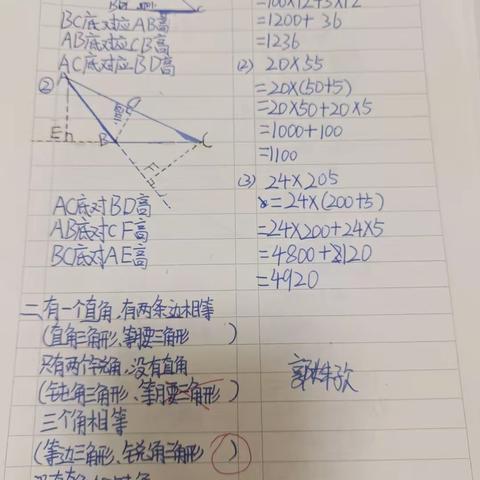 BC底对应AB高
AB底对应CB高
AC底对应BD高
②
A
D
高
E
B
C
F
AC底对BD高
AB底对CF高
BC底对AE高
二、有一个直角,有两条边相等
(直角三角形、等腰三角形)
只有两个锐角,没有直角
(钝角三角形、等腰三角形)
三个角相等
(等边三角形、锐角三角形)
=100×12+3×12
=1200+36
=1236
(2) 20×55
=20×(50+5)
=20×50+20×5
=1000+100
=1100
(3) 24×205
=24×(200+5)
=24×200+24×5
=4800+120
=4920